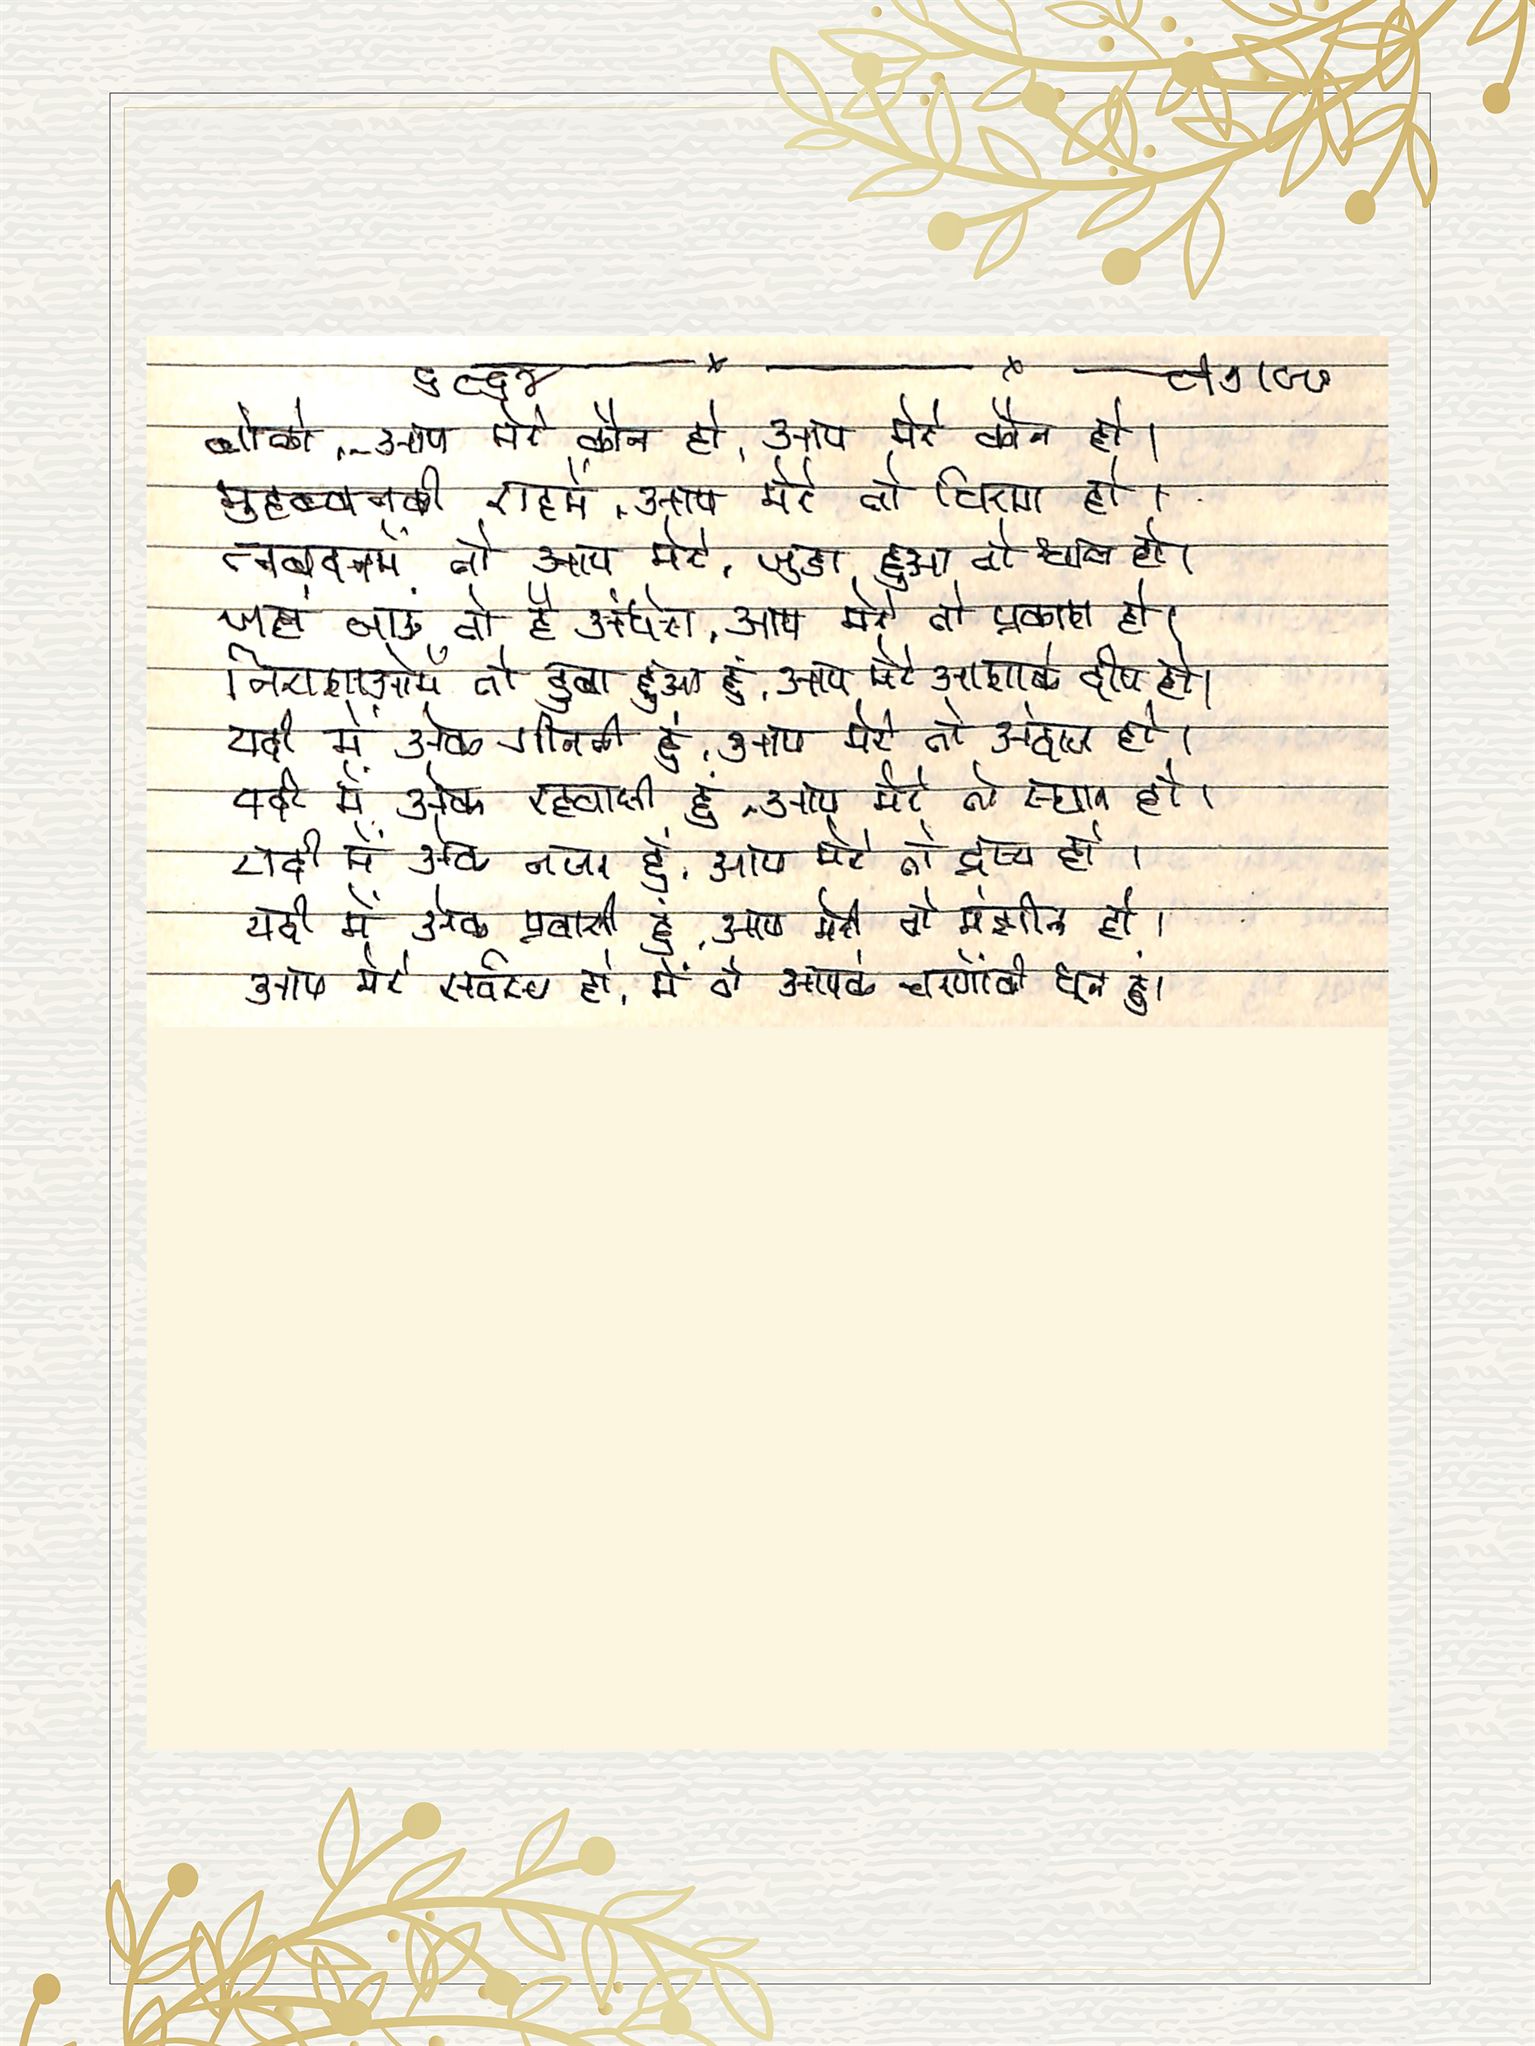 बोलो, आप मेरे कौन हो, आप मेरे कौन हो।
मुहब्बतकी राहमें, आप मेरे तो चिराग हो।
तनबदनमें तो आप मेरे, जुडा हुआ तो हो।
जहां जाऊं तो है अंधेरा, आप मेरे तो प्रकाश हो।
निराशाओमें तो डुबा हुआ हुं, आप मेरे आशाके दीप हो।
यदी में अेक हुं, आप मेरे तो अंदाज हो।
यदी में अेक रहवासी हुं, आप मेरे तो स्थान हो।
यदी में अेक नजर हुं, आप मेरे तो द्रष्य हो।
यदी में अेक प्रवासी हुं, आप मेरी तो मंझील हो।
आप मेरे सर्वस्व हो, में तो आपके चरणोंकी धूल हुं।